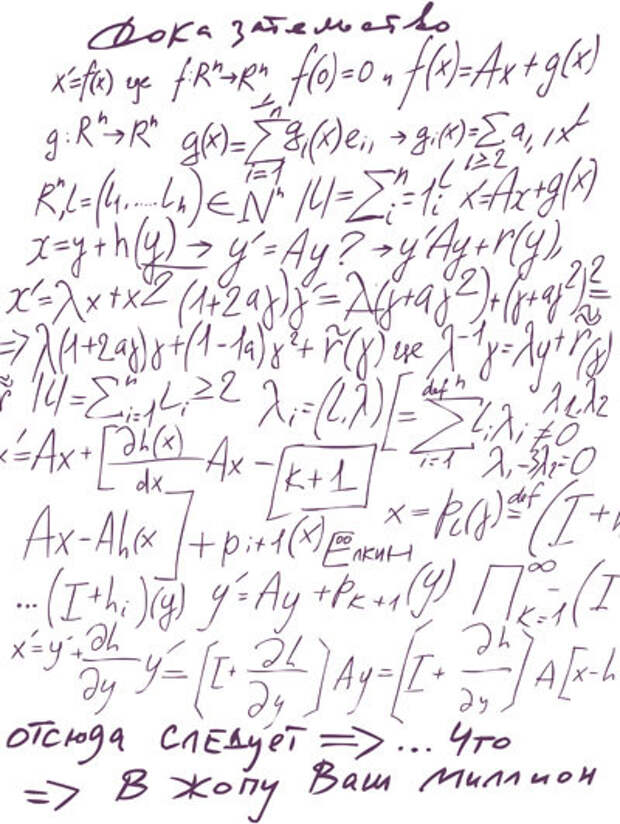 Доказательство
x'=f(x) где f:Rⁿ→Rⁿ f(0)=0 и f(x)=Ax+g(x)
g:Rⁿ→Rⁿ g(x)=∑ⁿᵢ₌₁gᵢ(x)eᵢ, → gᵢ(x)=∑
x'=Ax+g(x)
x=y+h(y) → y'=Ay? → y'Ay+r(y),
x'=λx+x2 (1+2ay)y'=λ(y+ay²)+(y+ay²)²=
=>λ(1+2ay)y+(1-1a)y²+r̃(y) где λ⁻¹y=λy+r̃(y)
|L|=∑ⁿᵢ₌₁Lᵢ≥2 λᵢ=(L,λ)[=∑ⁿᵢ₌₁Lᵢλᵢ≠0
def λ₁,λ₂
λ₁-3λ₂=0
x'=Ax+[∂h(x)/dx Ax-
k+1
Ax-Ah(x]+pᵢ+1(x) Ёлкин x=pₖ(y)=def(I+h
...(I+hᵢ)(y) y'=Ay+Pₖ₊₁(y) ∏^∞ₖ₌₁(I
x'=y'+∂h/∂y y'=[I+∂h/∂y]Ay=[I+∂h/∂y]A[x-h
отсюда следует => ... что
=> в жопу Ваш миллион